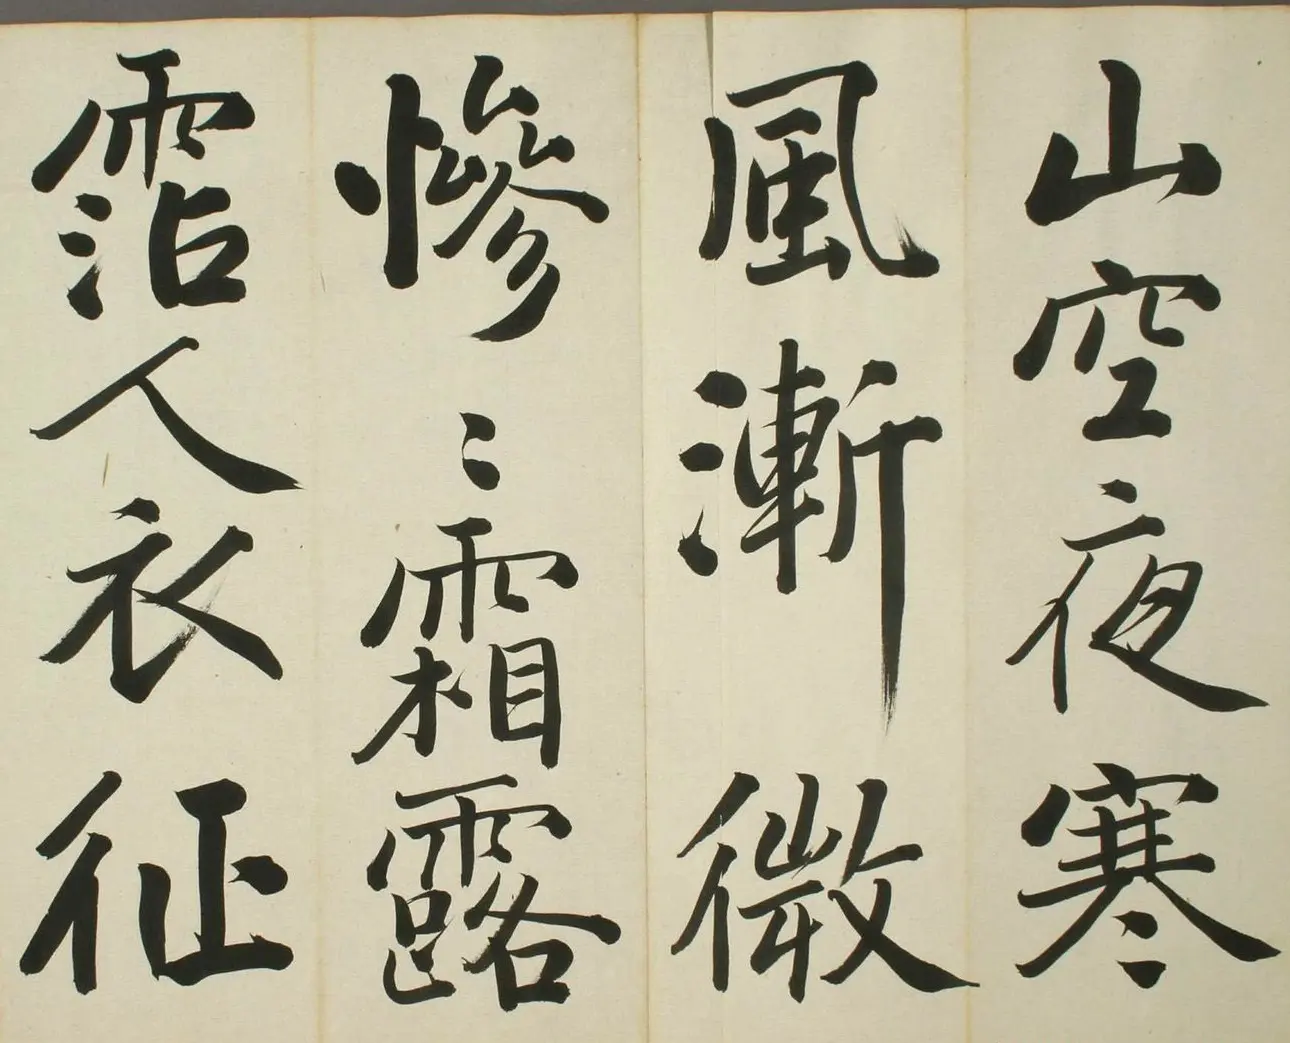 山空夜寒
風漸微
慘〻霜露
霑人衣征